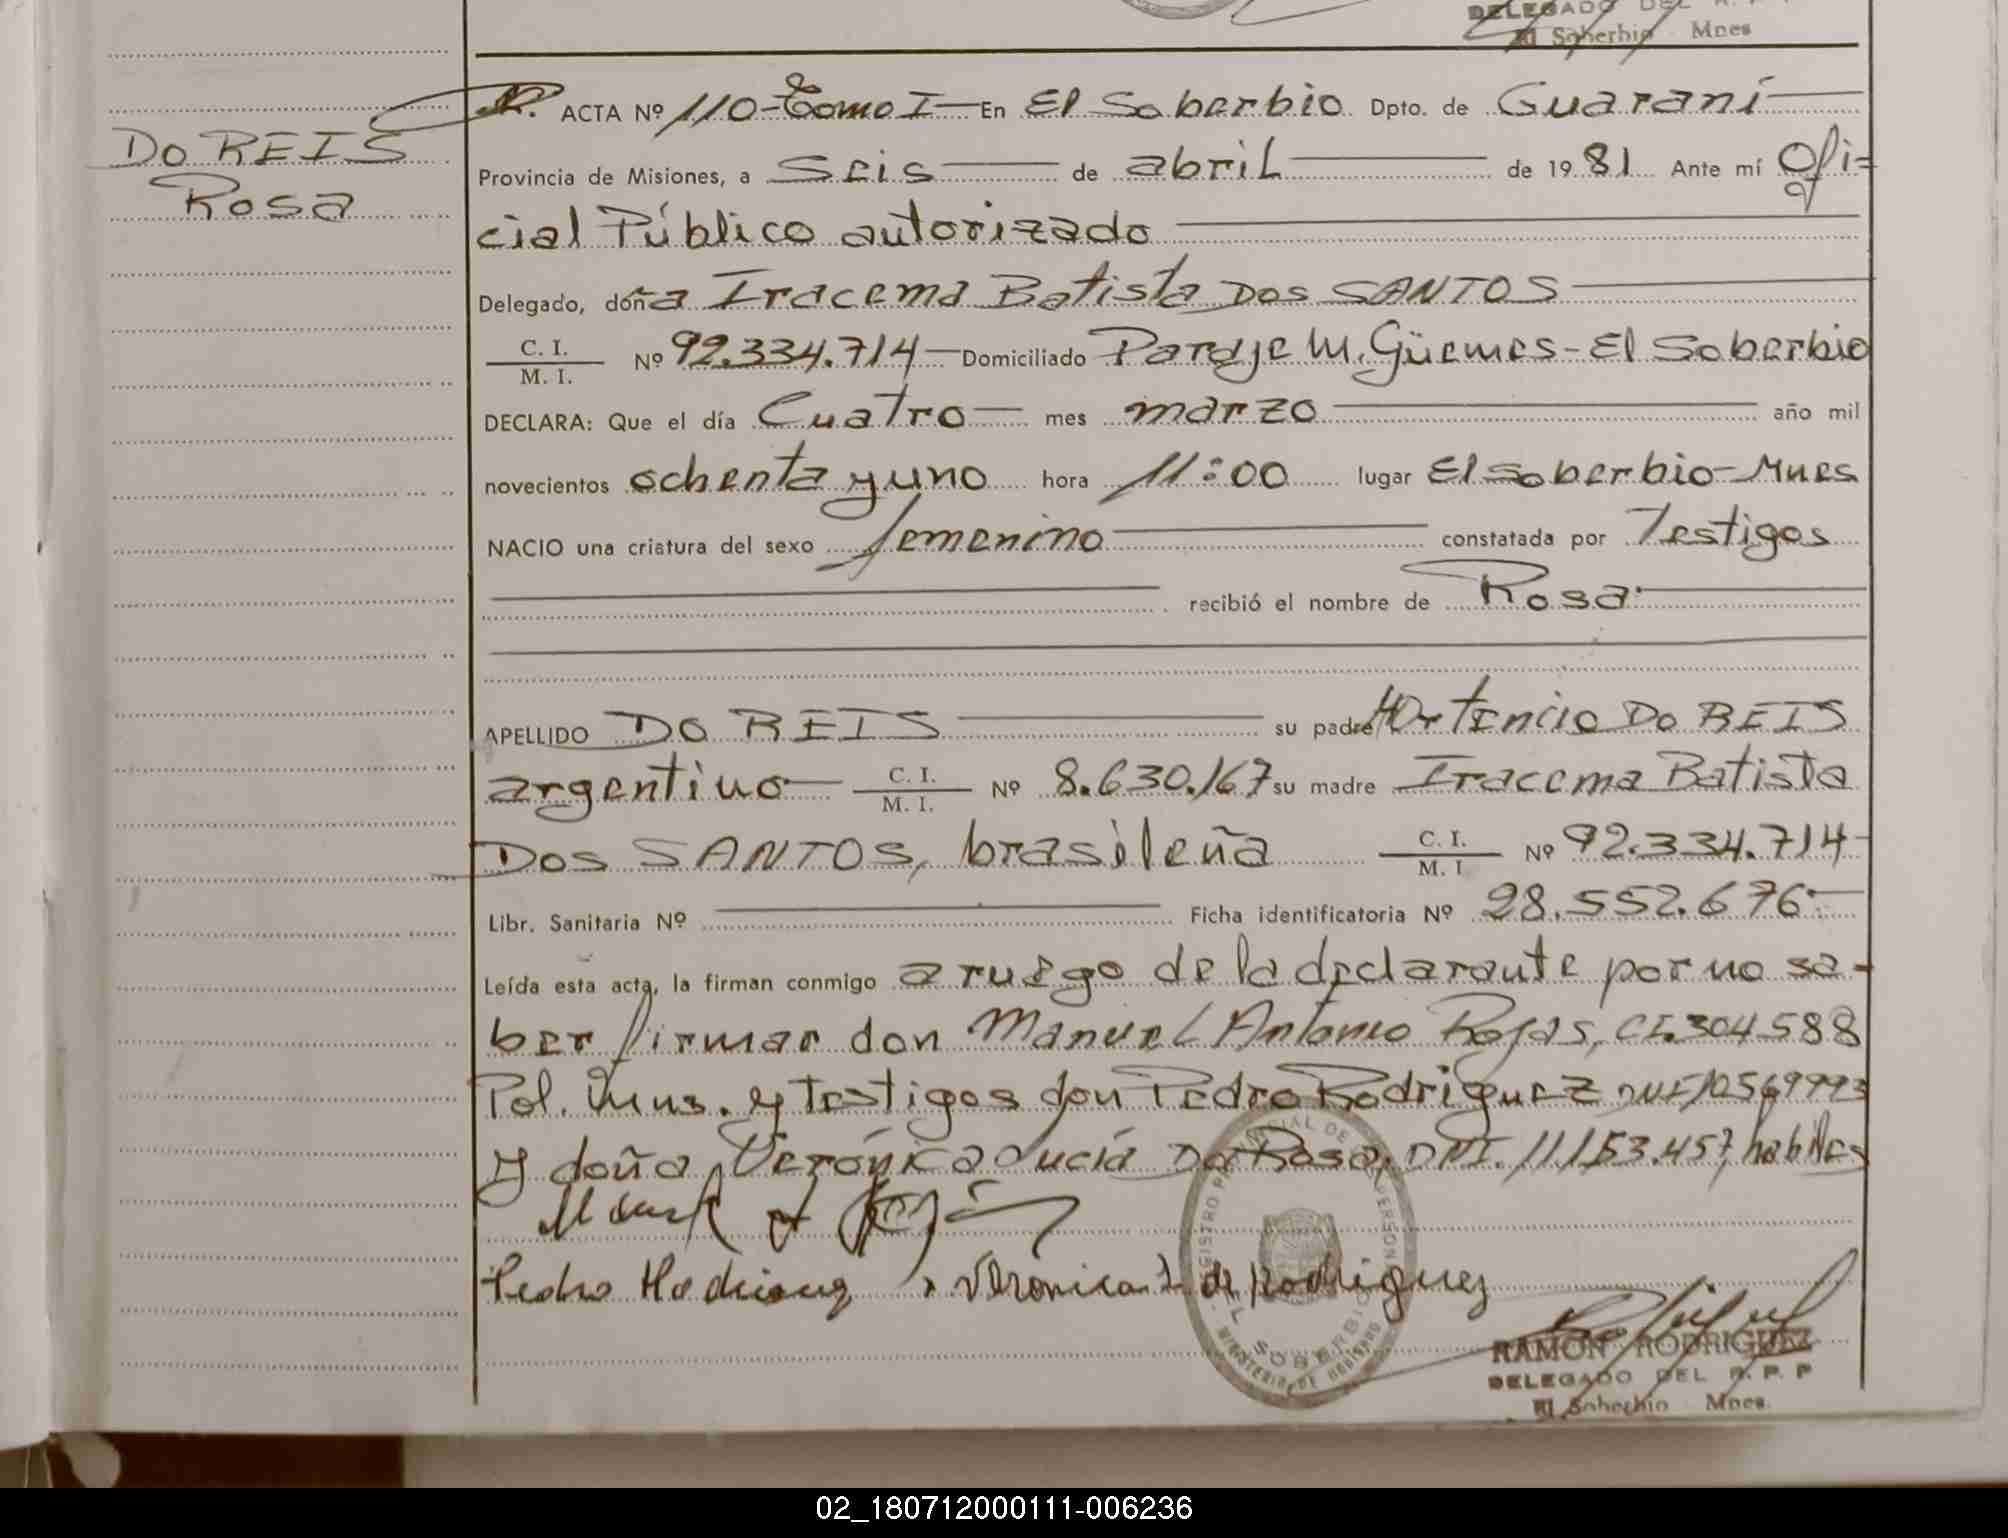 DELEGADO DEL R. P. P
El Soberbio Mnes
ACTA Nº 110-Tomo I En El Soberbio Dpto. de Guaraní
DO REIS
Rosa
Provincia de Misiones, a Seis de abril de 1981 Ante mí Ofi=
cial Público autorizado
Delegado, doña Iracema Batista DOS SANTOS
C. I.
M. I. Nº 92.334.714 Domiciliado Paraje M. Güemes-El Soberbio
DECLARA: Que el día Cuatro mes marzo año mil
novecientos ochenta y uno hora 11:00 lugar El Soberbio-Mnes
NACIO una criatura del sexo femenino constatada por Testigos
recibió el nombre de Rosa
APELLIDO DO REIS su padre Hortencio DO REIS
argentino C. I.
M. I. Nº 8.630.167 su madre Iracema Batista
DOS SANTOS, brasileña C. I.
M. I Nº 92.334.714-
Libr. Sanitaria Nº Ficha identificatoria Nº 28.552.676
Leída esta acta, la firman conmigo a ruego de la declarante por no sa-
ber firmar don Manuel Antonio Rojas, CI.304588
Pol. Mns. y testigos don Pedro Rodriguez DNI 10569993
y doña Verónica Lucía Da Rosa, DNI. 11153.457, habiles
Pedro Rodriguez Veronica L de Rodriguez
REGISTRO PROVINCIAL DE PERSONAS
EL SOBERBIO
RAMON RODRIGUEZ
DELEGADO DEL R. P. P
El Soberbio Mnes.
02_180712000111-006236